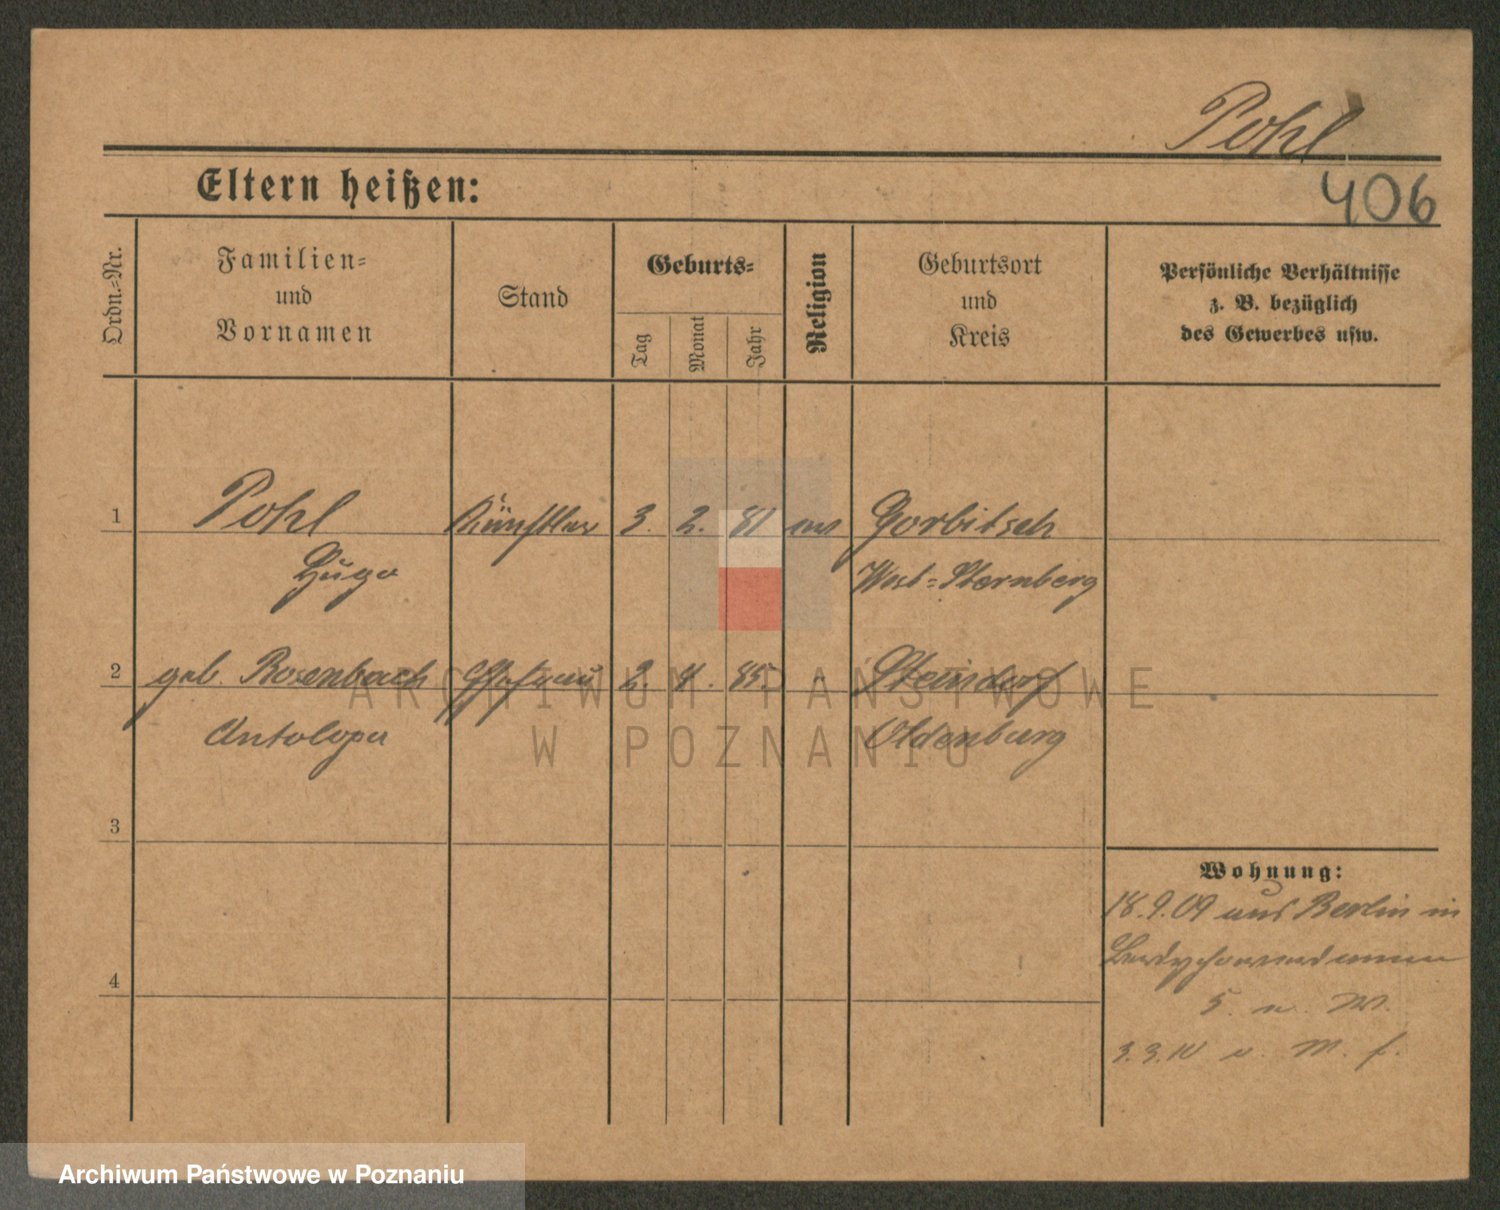 Pohl
406
Eltern heißen:
Ordn.-Nr.
Familien-
und
Vornamen
Stand
Geburts-
Tag
Monat
Jahr
Religion
Geburtsort
und
Kreis
Persönliche Verhältnisse
z. B. bezüglich
des Gewerbes usw.
1 Pohl Künstler 3. 2. 81 ev Gorbitsch
Hugo West-Sternberg
2 geb. Rosenbach Ehefrau 2. 4. 85. Steindorf
Oldenburg
3
Wohnung:
18.9.09 aus Berlin in
4
ARCHIWUM PAŃSTWOWE
W POZNANIU
Archiwum Państwowe w Poznaniu